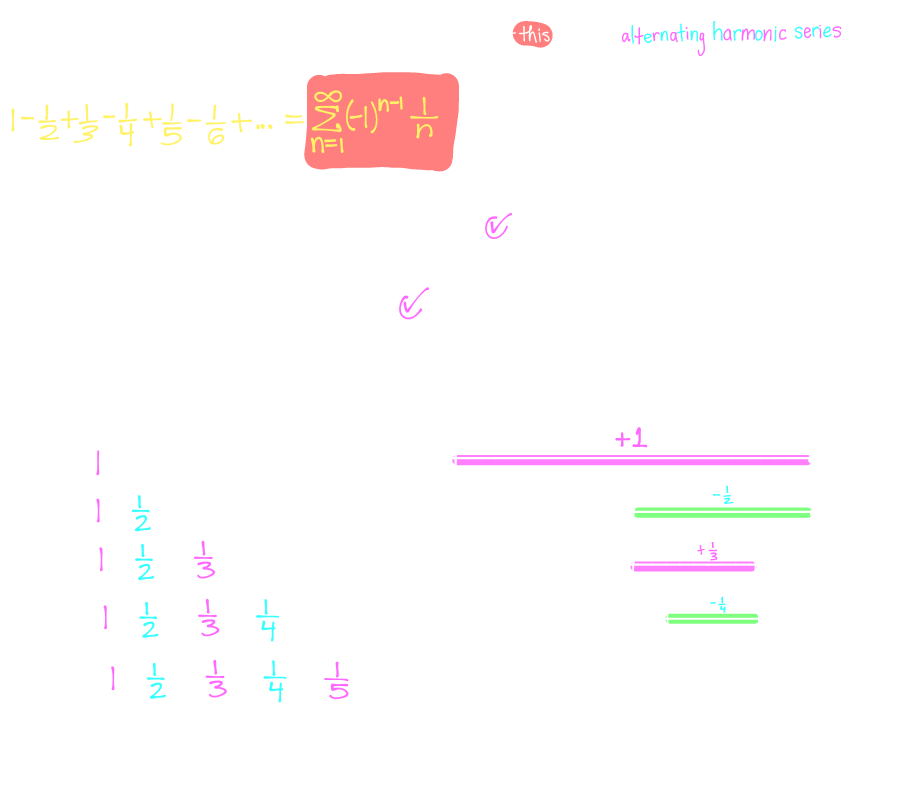 this alternating harmonic series
1 - 1/2 + 1/3 - 1/4 + 1/5 - 1/6 + ... = ∑_{n=1}^{∞} (-1)^{n-1} 1/n
+1
1
1 1/2 -1/2
1 1/2 1/3 +1/3
1 1/2 1/3 1/4 -1/4
1 1/2 1/3 1/4 1/5